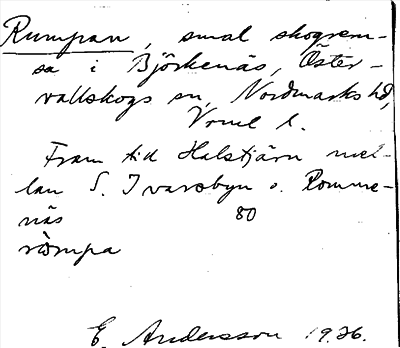 Rumpan, smal skogrem-
sa i Björkenäs, Öster-
vallskogs sn, Nordmarks hd,
Vrml l.
Fram tid Halstjärn mel-
lan S. Ivarsbyn o. Romme-
näs 80
römpa
E. Andersson 1926.